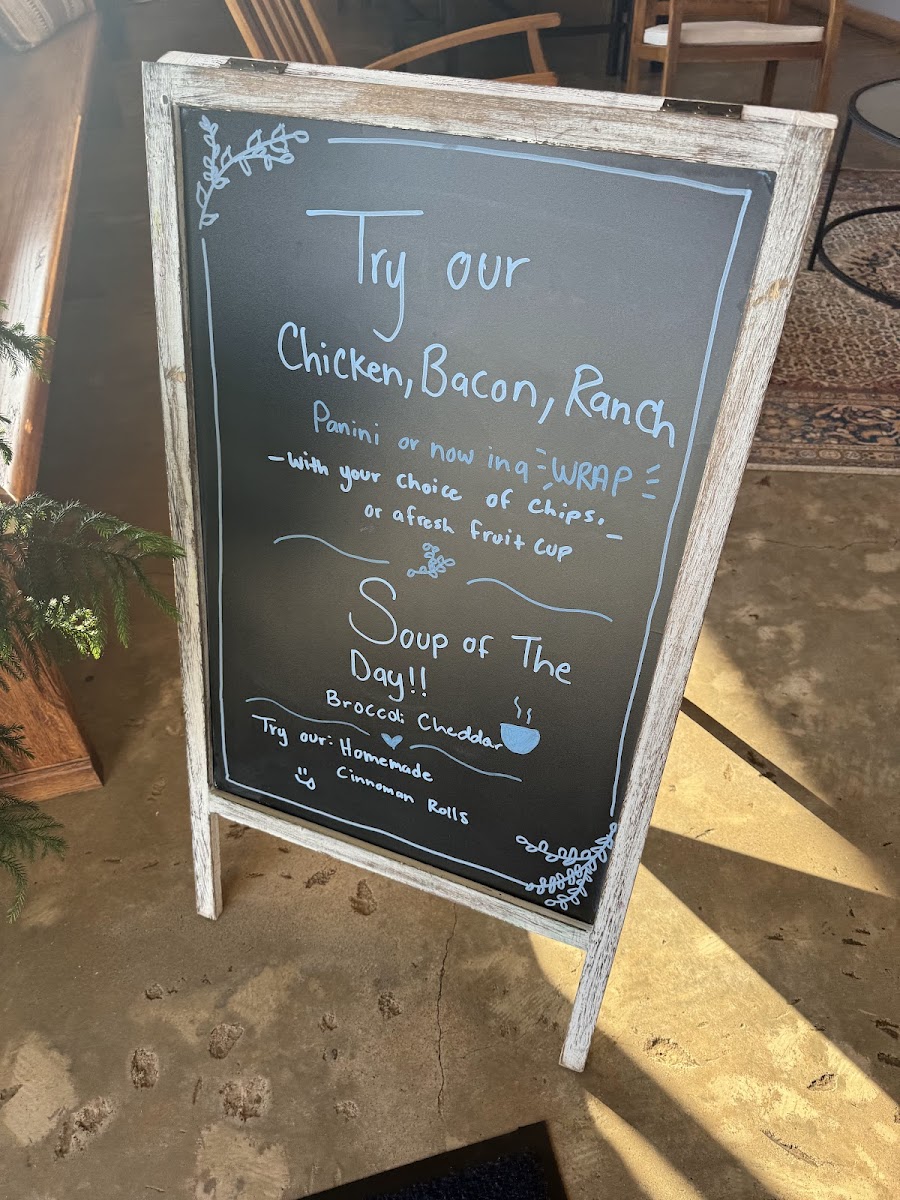 Try our
Chicken, Bacon, Ranch
Panini or now in a WRAP
- With your choice of chips. -
or a fresh fruit cup
Soup of The
Day!!
Broccoli Cheddar
Try our: Homemade
Cinnoman Rolls